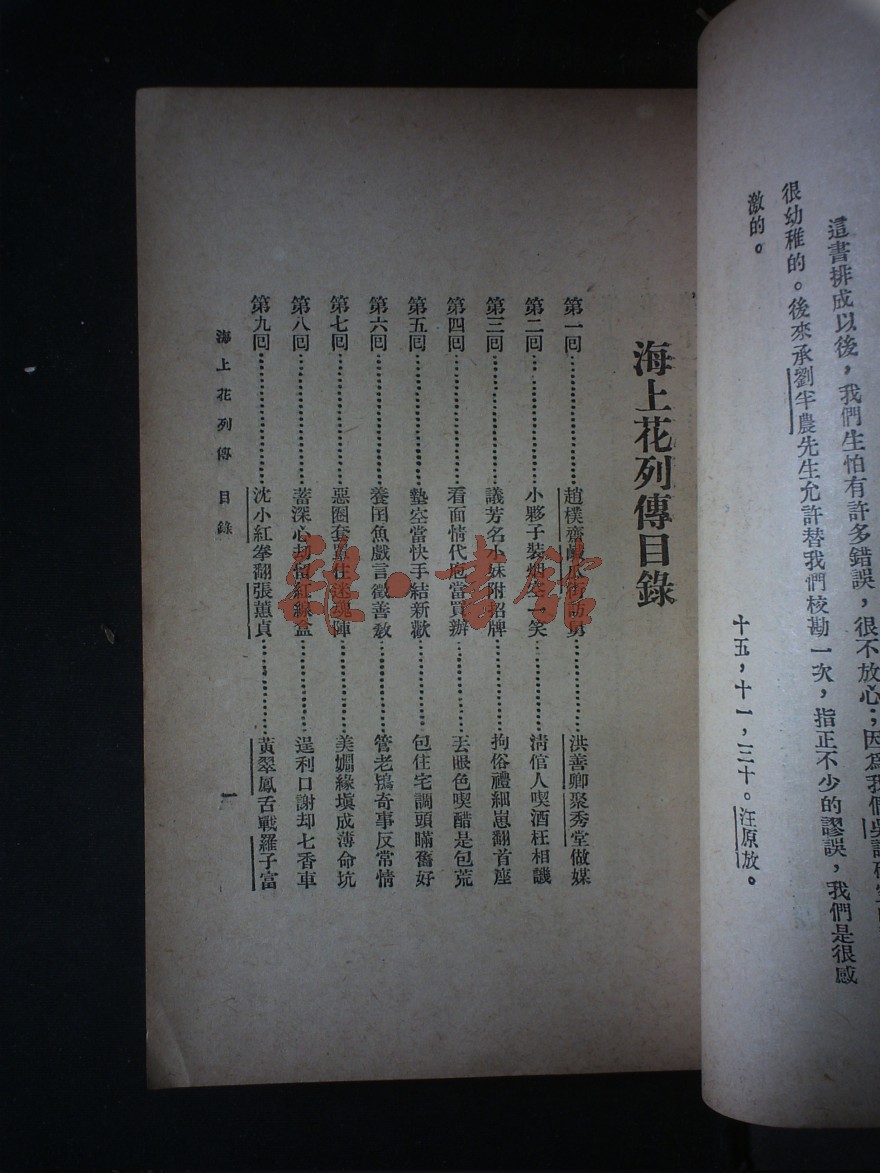 這書排成以後，我們生怕有許多錯誤，很不放心；因爲我們吳語
很幼稚的。後來承劉半農先生允許替我們校勘一次，指正不少的謬誤，我們是很感
激的。
十五，十一，三十。汪原放。
海上花列傳目錄
第一回………………趙樸齋鹹瓜街訪舅………洪善卿聚秀堂做媒
第二回………………小夥子裝烟空一笑………淸倌人喫酒枉相譏
第三回………………議芳名小妹附招牌………拘俗禮細崽翻首座
第四回………………看面情代庖當買辦………丟眼色喫醋是包荒
第五回………………墊空當快手結新歡………包住宅調頭瞞舊好
第六回………………養囝魚戲言徵善敎………管老鴇奇事反常情
第七回………………惡圈套罩住迷魂陣………美姻緣塡成薄命坑
第八回………………蓄深心劫留紅綠盒………逞利口謝却七香車
第九回………………沈小紅拳翻張蕙貞………黃翠鳳舌戰羅子富
海上花列傳 目錄
一